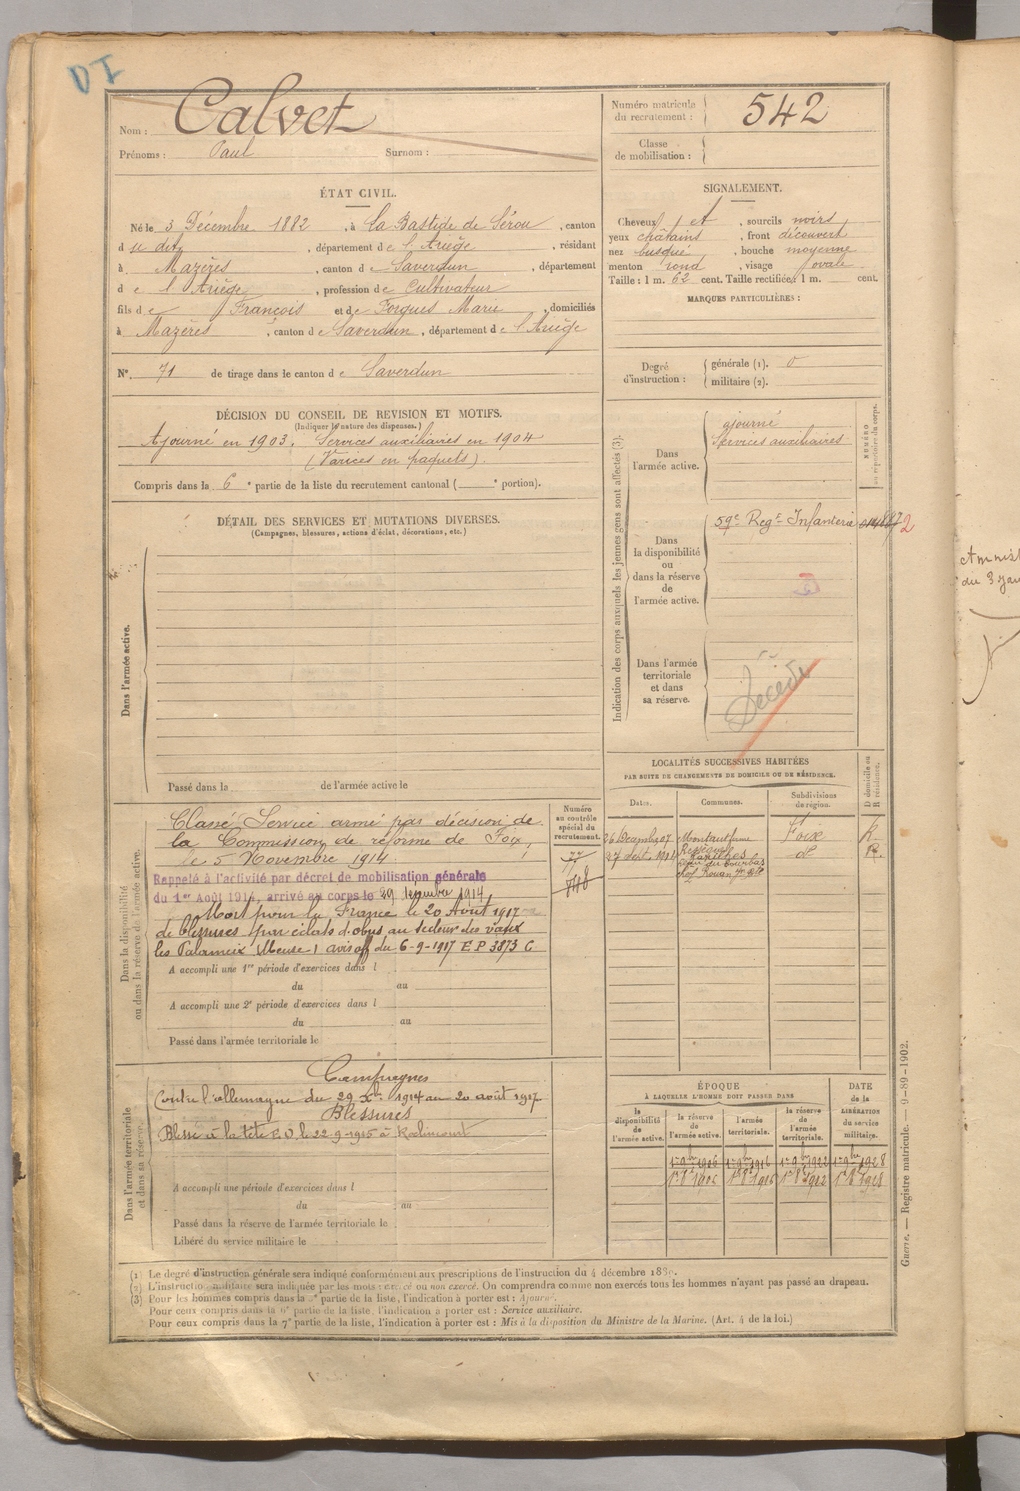 DI
Nom : Calvet
Prénoms : Paul Surnom :
Numéro matricule du recrutement : 542
Classe de mobilisation :
ÉTAT CIVIL.
Né le 3 Décembre 1882, à La Bastide de Sérou, canton
du dit, département de l'Ariège, résidant
à Mazères, canton de Saverdun, département
de l'Ariège, profession de Cultivateur
fils de François et de Forgues Marie, domiciliés
à Mazères, canton de Saverdun, département de l'Ariège
N° 71 de tirage dans le canton de Saverdun
SIGNALEMENT.
Cheveux et, sourcils noirs
yeux châtains, front découvert
nez busqué, bouche moyenne
menton rond, visage ovale
Taille : 1 m. 62 cent. Taille rectifiée : 1 m. cent.
MARQUES PARTICULIÈRES :
Degré d'instruction : générale (1). 0
militaire (2).
DÉCISION DU CONSEIL DE REVISION ET MOTIFS.
(Indiquer la nature des dispenses.)
Ajourné en 1903. Services auxiliaires en 1904
(Varices en paquets).
Compris dans la 6e partie de la liste du recrutement cantonal ( e portion).
DÉTAIL DES SERVICES ET MUTATIONS DIVERSES.
(Campagnes, blessures, actions d'éclat, décorations, etc.)
Dans l'armée active.
Passé dans la de l'armée active le
Indication des corps auxquels les jeunes gens sont affectés (3).
NUMÉRO au répertoire du corps.
Dans l'armée active.
ajourné
Services auxiliaires
Dans la disponibilité ou dans la réserve de l'armée active.
59e Regt Infanterie
Dans l'armée territoriale et dans sa réserve.
Décédé
LOCALITÉS SUCCESSIVES HABITÉES
PAR SUITE DE CHANGEMENTS DE DOMICILE OU DE RÉSIDENCE.
Dates. Communes. Subdivisions de région. D domicile ou R résidence.
26 Decembre 07 Foix R
27 Sept. 1914 do R.
Dans la disponibilité ou dans la réserve de l'armée active.
Numéro au contrôle spécial du recrutement.
77
748
Classé Service armé par décision de
la Commission de réforme de Foix,
le 5 Novembre 1914
Rappelé à l'activité par décret de mobilisation générale
du 1er Août 1914, arrivé au corps le 29 1914.
Mort pour la France le 20 Août 1917
de blessures par éclats d'obus au secteur des vaux
les Palameix Meuse) avis off du 6-9-1917 E P 3873 C
A accompli une 1re période d'exercices dans l
du au
A accompli une 2e période d'exercices dans l
du au
Passé dans l'armée territoriale le
Dans l'armée territoriale et dans sa réserve.
Campagnes
Contre l'allemagne du 29 Xbre 1914 au 20 août 1917
Blessures
Blessé à la tête E.O le 22-9-1915 à Roclincourt
A accompli une période d'exercices dans l
du au
Passé dans la réserve de l'armée territoriale le
Libéré du service militaire le
ÉPOQUE
À LAQUELLE L'HOMME DOIT PASSER DANS
DATE de la LIBÉRATION du service militaire.
la disponibilité de l'armée active. la réserve de l'armée active. l'armée territoriale. la réserve de l'armée territoriale.
1er 9bre 1906 1er 9bre 1916 1er 9bre 1922 1er 9bre 1928
(1) Le degré d'instruction générale sera indiqué conformément aux prescriptions de l'instruction du 4 décembre 1889.
(2) L'instruction militaire sera indiquée par les mots : exercé ou non exercé. On comprendra comme non exercés tous les hommes n'ayant pas passé au drapeau.
(3) Pour les hommes compris dans la 5e partie de la liste, l'indication à porter est : Ajourné.
Pour ceux compris dans la 6e partie de la liste, l'indication à porter est : Service auxiliaire.
Pour ceux compris dans la 7e partie de la liste, l'indication à porter est : Mis à la disposition du Ministre de la Marine. (Art. 4 de la loi.)
Guerre. — Registre matricule. — 9-89-1902.